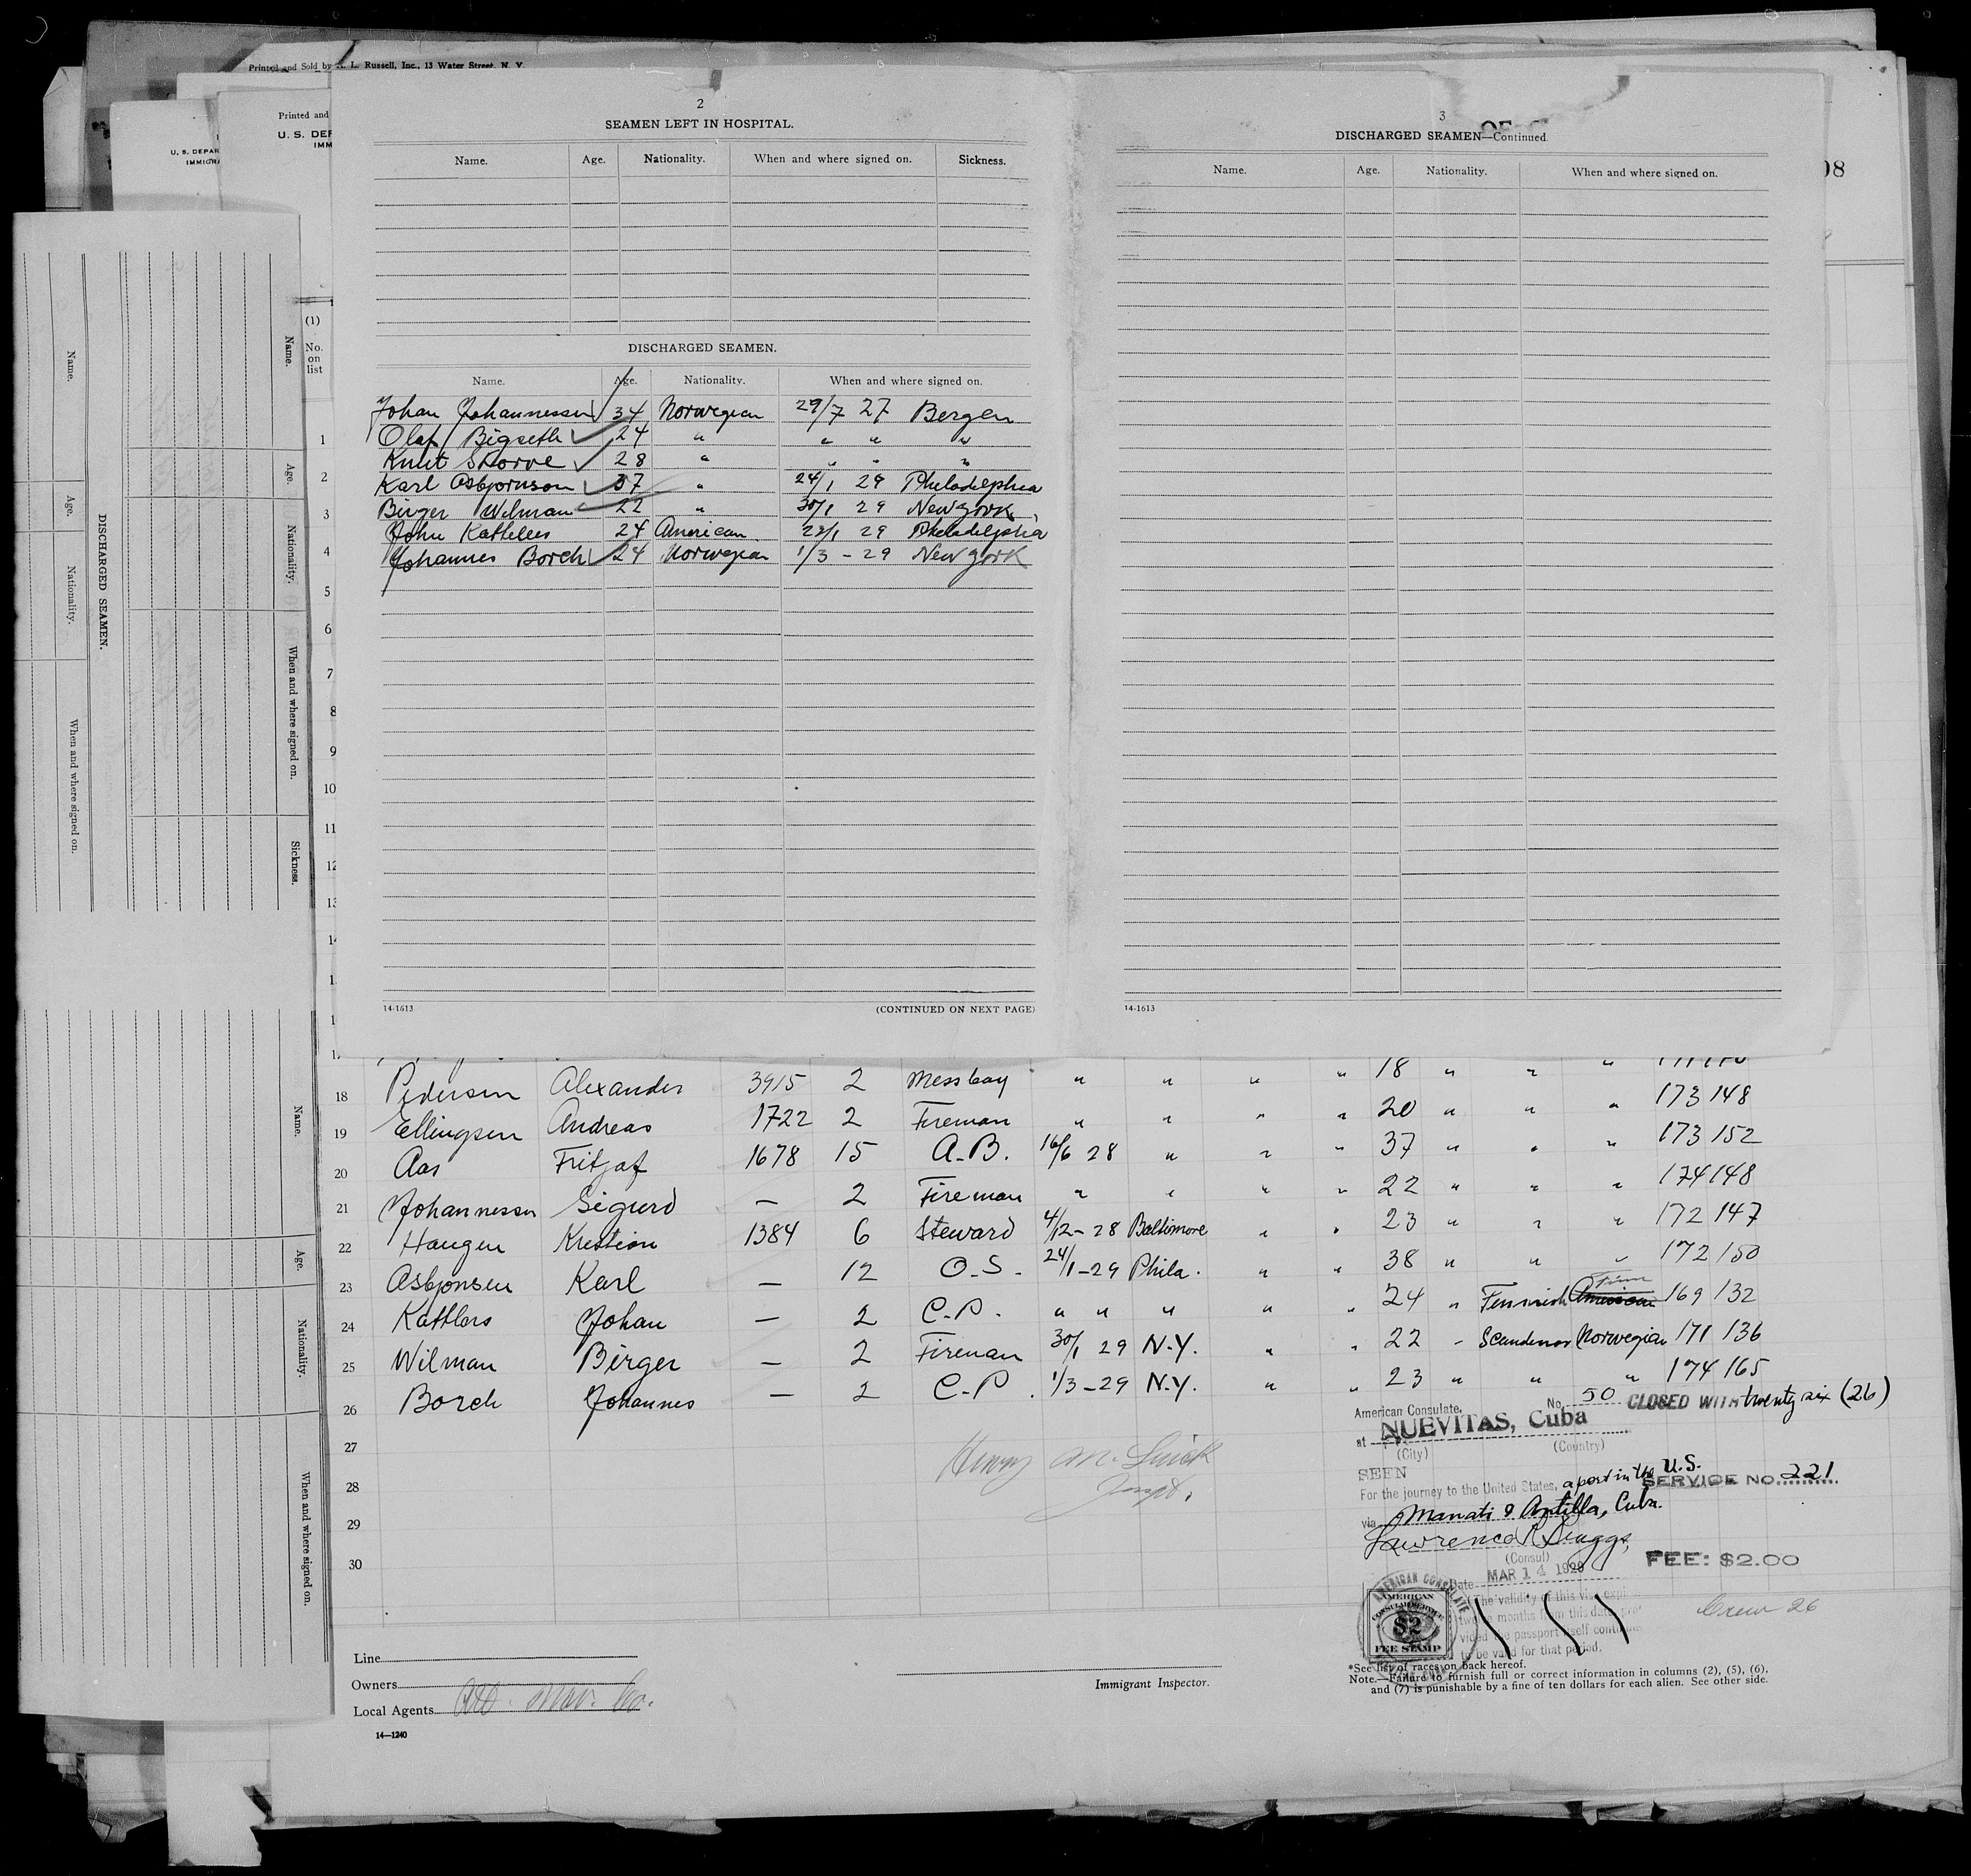 Printed and Sold by A. L. Russell, Inc., 13 Water Street, N. Y.
Printed and
U. S. DEP
IMM
U. S. DEPAR
IMMIGRA
(1)
No.
on
list
2
SEAMEN LEFT IN HOSPITAL.
Name. Age. Nationality. When and where signed on. Sickness.
DISCHARGED SEAMEN.
Name. Age. Nationality. When and where signed on.
Johan Johannessen 34 Norwegian 29/7 27 Bergen
Olaf Bigseth 24 " " " "
Knut Skorve 28 " " " "
Karl Asbjornson 37 " 24/1 29 Philadelphia
Birger Wilman 22 " 30/1 29 New York
John Kattlers 24 American 22/1 29 Philadelphia
Johannes Borch 24 Norwegian 1/3 - 29 New York
14-1613
(CONTINUED ON NEXT PAGE)
3
DISCHARGED SEAMEN—Continued.
Name. Age. Nationality. When and where signed on.
14-1613
08
Name. Age. Nationality. When and where signed on.
DISCHARGED SEAMEN.
Name. Age. Nationality. When and where signed on. Sickness.
Name. Age. Nationality. When and where signed on.
1
2
3
4
5
6
7
8
9
10
11
12
13
18 Pedersen Alexander 3915 2 Messboy " " " " 18 " " "
19 Ellingsen Andreas 1722 2 Fireman " " " " 20 " " " 173 148
20 Aas Fritjof 1678 15 A.B. 16/6 28 " " " 37 " " " 173 152
21 Johannessen Sigurd — 2 Fireman " " " " 22 " " " 174 148
22 Haugen Kristian 1384 6 Steward 4/12 - 28 Baltimore " " 23 " " " 172 147
23 Asbjonsen Karl — 12 O.S. 24/1 - 29 Phila. " " 38 " " " 172 150
24 Kattlers Johan — 2 C.P. " " " " " 24 " Finnish American Finn 169 132
25 Wilman Birger — 2 Fireman 30/1 29 N.Y. " " 22 " Scandinav Norwegian 171 136
26 Borch Johannes — 2 C.P. 1/3 - 29 N.Y. " " 23 " " " 174 165
27
28
29
30
American Consulate. No. 50 CLOSED WITH twenty six (26)
at NUEVITAS, Cuba
(City) (Country)
SEEN
For the journey to the United States, a port in the U.S.
SERVICE NO. 221
via Manati & Antilla, Cuba.
(Consul)
FEE: $2.00
Date MAR 14 1929
The validity of this visa expires
twelve months from this date pro
vided the passport itself continues
to be valid for that period.
AMERICAN CONSULATE
AMERICAN
CONSULAR SERVICE
$2
FEE STAMP
Crew 26
Line
Owners
Local Agents
Immigrant Inspector.
*See list of races on back hereof.
Note.—Failure to furnish full or correct information in columns (2), (5), (6),
and (7) is punishable by a fine of ten dollars for each alien. See other side.
14—1240